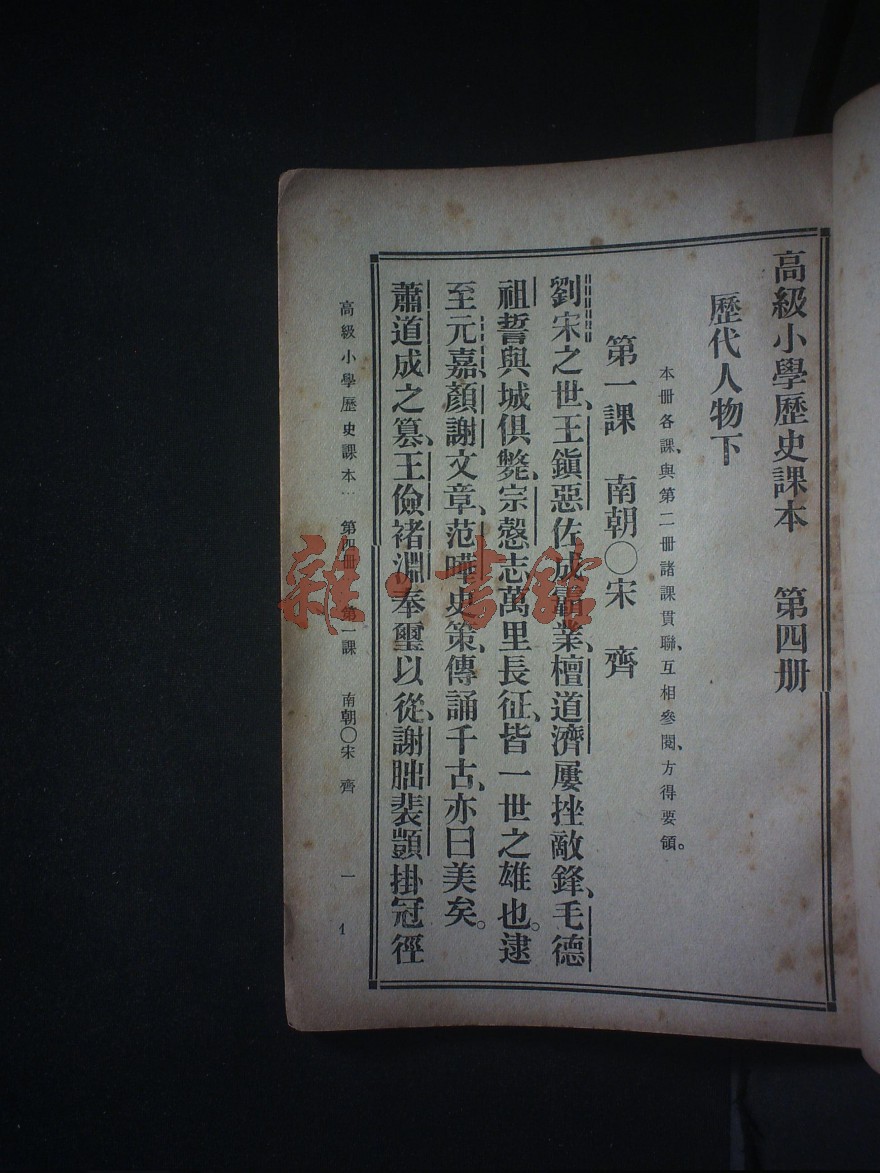 高級小學歷史課本 第四册
歷代人物下
本冊各課、與第二冊諸課貫聯、互相參閱、方得要領。
第一課 南朝〇宋 齊
劉宋之世、王鎭惡佐成霸業、檀道濟屢挫敵鋒、毛德
祖誓與城俱斃、宗慤志萬里長征、皆一世之雄也。逮
至元嘉、顏謝文章、范曄史策、傳誦千古、亦曰美矣。
蕭道成之篡、王儉褚淵奉璽以從、謝朏裴顗掛冠徑
高級小學歷史課本… 第四冊 第一課 南朝〇宋 齊 一
1
雜·書館